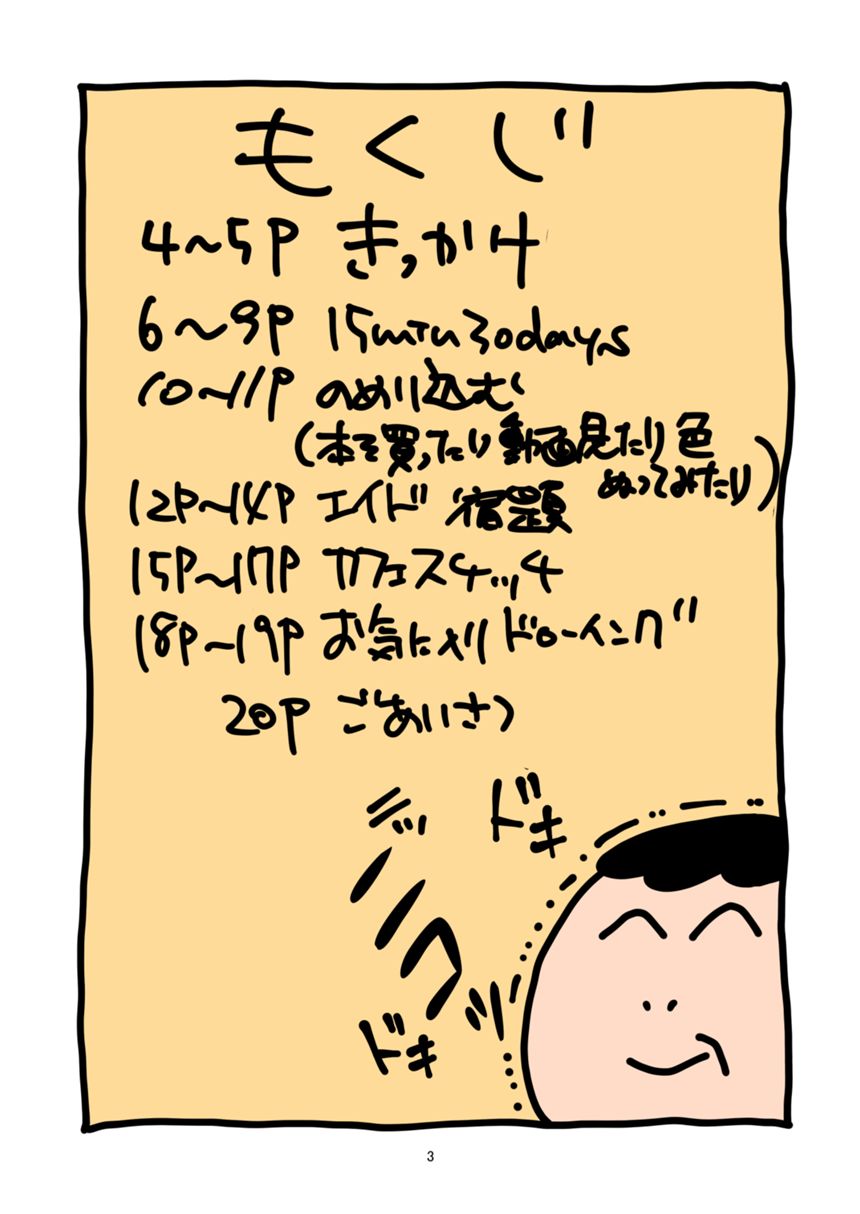 もくじ
4～5P きっかけ
6～9P 15min30days
10～11P のめり込む
(本を買ったり動画見たり色
ぬってみたり)
12P～14P エイド 宿題
15P～17P カフェスケッチ
18P～19P お気に入りドローイング
20P ごあいさつ
ドキ
ドキ
3